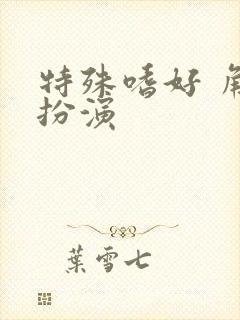 特殊嗜好 角
扮演
葉雪七